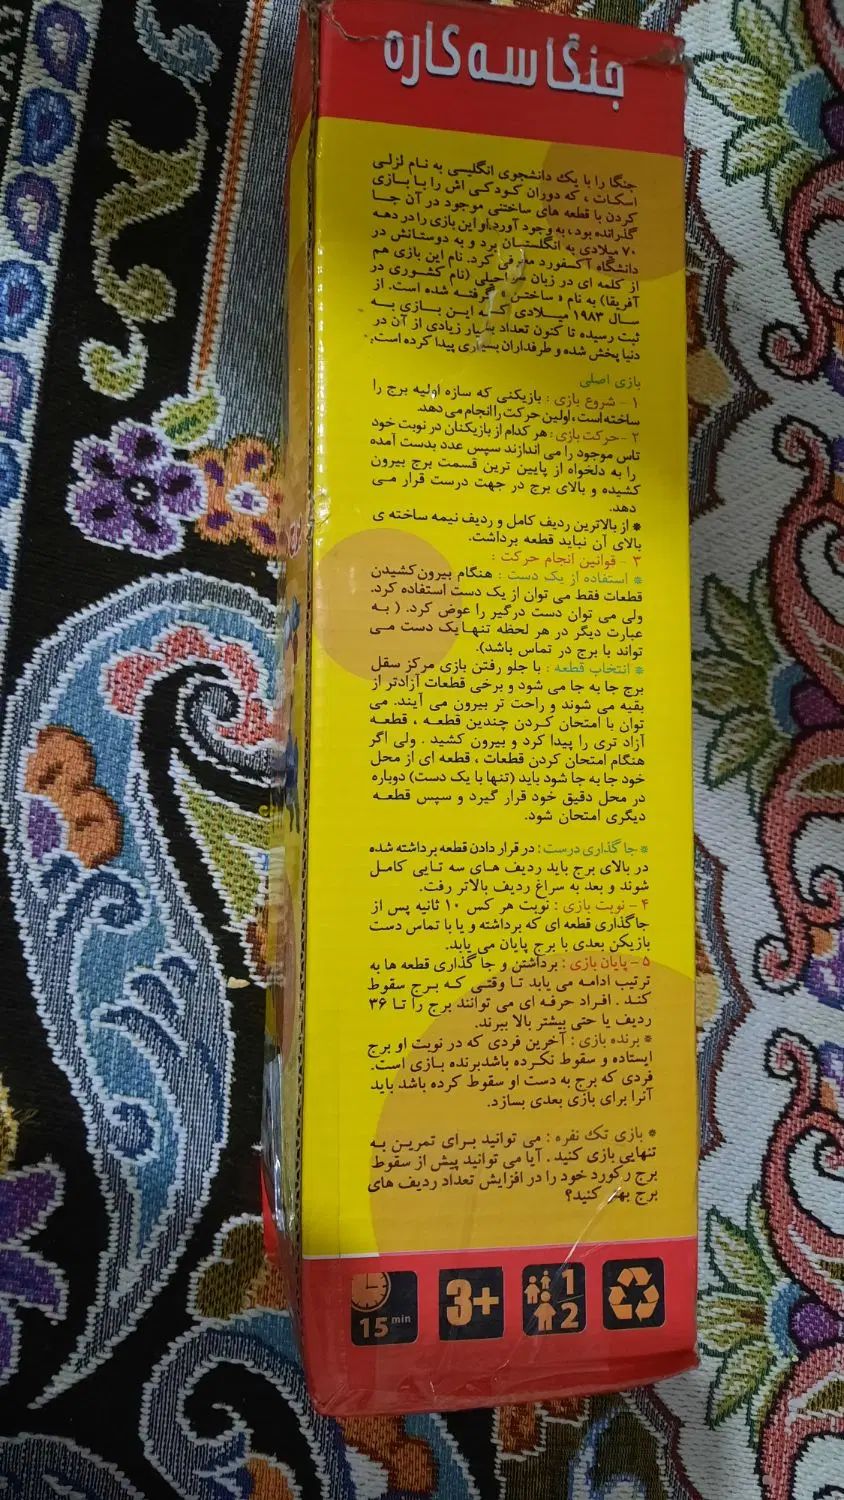 جنگا سه کاره
جنگا را با یک دانشجوی انگلیسی به نام لزلی
اسکات ، که دوران کودکی اش را با بازی
کردن با قطعه های ساختنی موجود در آن جا
گذرانده بود، به وجود آورد. او این بازی را در دهه
۷۰ میلادی به انگلستان برد و به دوستانش در
دانشگاه آکسفورد معرفی کرد. نام این بازی هم
از کلمه ای در زبان سواحیلی (نام کشوری در
آفریقا) به نام « ساختن » گرفته شده است. از
سال ۱۹۸۳ میلادی که این بازی به
ثبت رسیده تا کنون تعداد بسیار زیادی از آن در
دنیا پخش شده و طرفداران بسیاری پیدا کرده است.
بازی اصلی
۱ - شروع بازی : بازیکنی که سازه اولیه برج را
ساخته است، اولین حرکت را انجام می دهد.
۲ - حرکت بازی : هر کدام از بازیکنان در نوبت خود
تاس موجود را می اندازند سپس عدد بدست آمده
را به دلخواه از پایین ترین قسمت برج بیرون
کشیده و بالای برج در جهت درست قرار می
دهد.
* از بالاترین ردیف کامل و ردیف نیمه ساخته ی
بالای آن نباید قطعه برداشت.
۳ - قوانین انجام حرکت :
* استفاده از یک دست : هنگام بیرون کشیدن
قطعات فقط می توان از یک دست استفاده کرد.
ولی می توان دست درگیر را عوض کرد. ( به
عبارت دیگر در هر لحظه تنها یک دست می
تواند با برج در تماس باشد).
* انتخاب قطعه : با جلو رفتن بازی مرکز سقل
برج جا به جا می شود و برخی قطعات آزادتر از
بقیه می شوند و راحت تر بیرون می آیند. می
توان با امتحان کردن چندین قطعه ، قطعه
آزاد تری را پیدا کرد و بیرون کشید . ولی اگر
هنگام امتحان کردن قطعات ، قطعه ای از محل
خود جا به جا شود باید (تنها با یک دست) دوباره
در محل دقیق خود قرار گیرد و سپس قطعه
دیگری امتحان شود.
* جا گذاری درست : در قرار دادن قطعه برداشته شده
در بالای برج باید ردیف های سه تایی کامل
شوند و بعد به سراغ ردیف بالاتر رفت.
۴ - نوبت بازی : نوبت هر کس ۱۰ ثانیه پس از
جاگذاری قطعه ای که برداشته و یا با تماس دست
بازیکن بعدی با برج پایان می یابد.
۵ - پایان بازی : برداشتن و جا گذاری قطعه ها به
ترتیب ادامه می یابد تا وقتی که برج سقوط
کند . افراد حرفه ای می توانند برج را تا ۳۶
ردیف یا حتی بیشتر بالا ببرند.
* برنده بازی : آخرین فردی که در نوبت او برج
ایستاده و سقوط نکرده باشد برنده بازی است.
فردی که برج به دست او سقوط کرده باشد باید
آنرا برای بازی بعدی بسازد.
* بازی تک نفره : می توانید برای تمرین به
تنهایی بازی کنید . آیا می توانید پیش از سقوط
برج رکورد خود را در افزایش تعداد ردیف های
برج بهتر کنید؟
15 min
3+
1
2